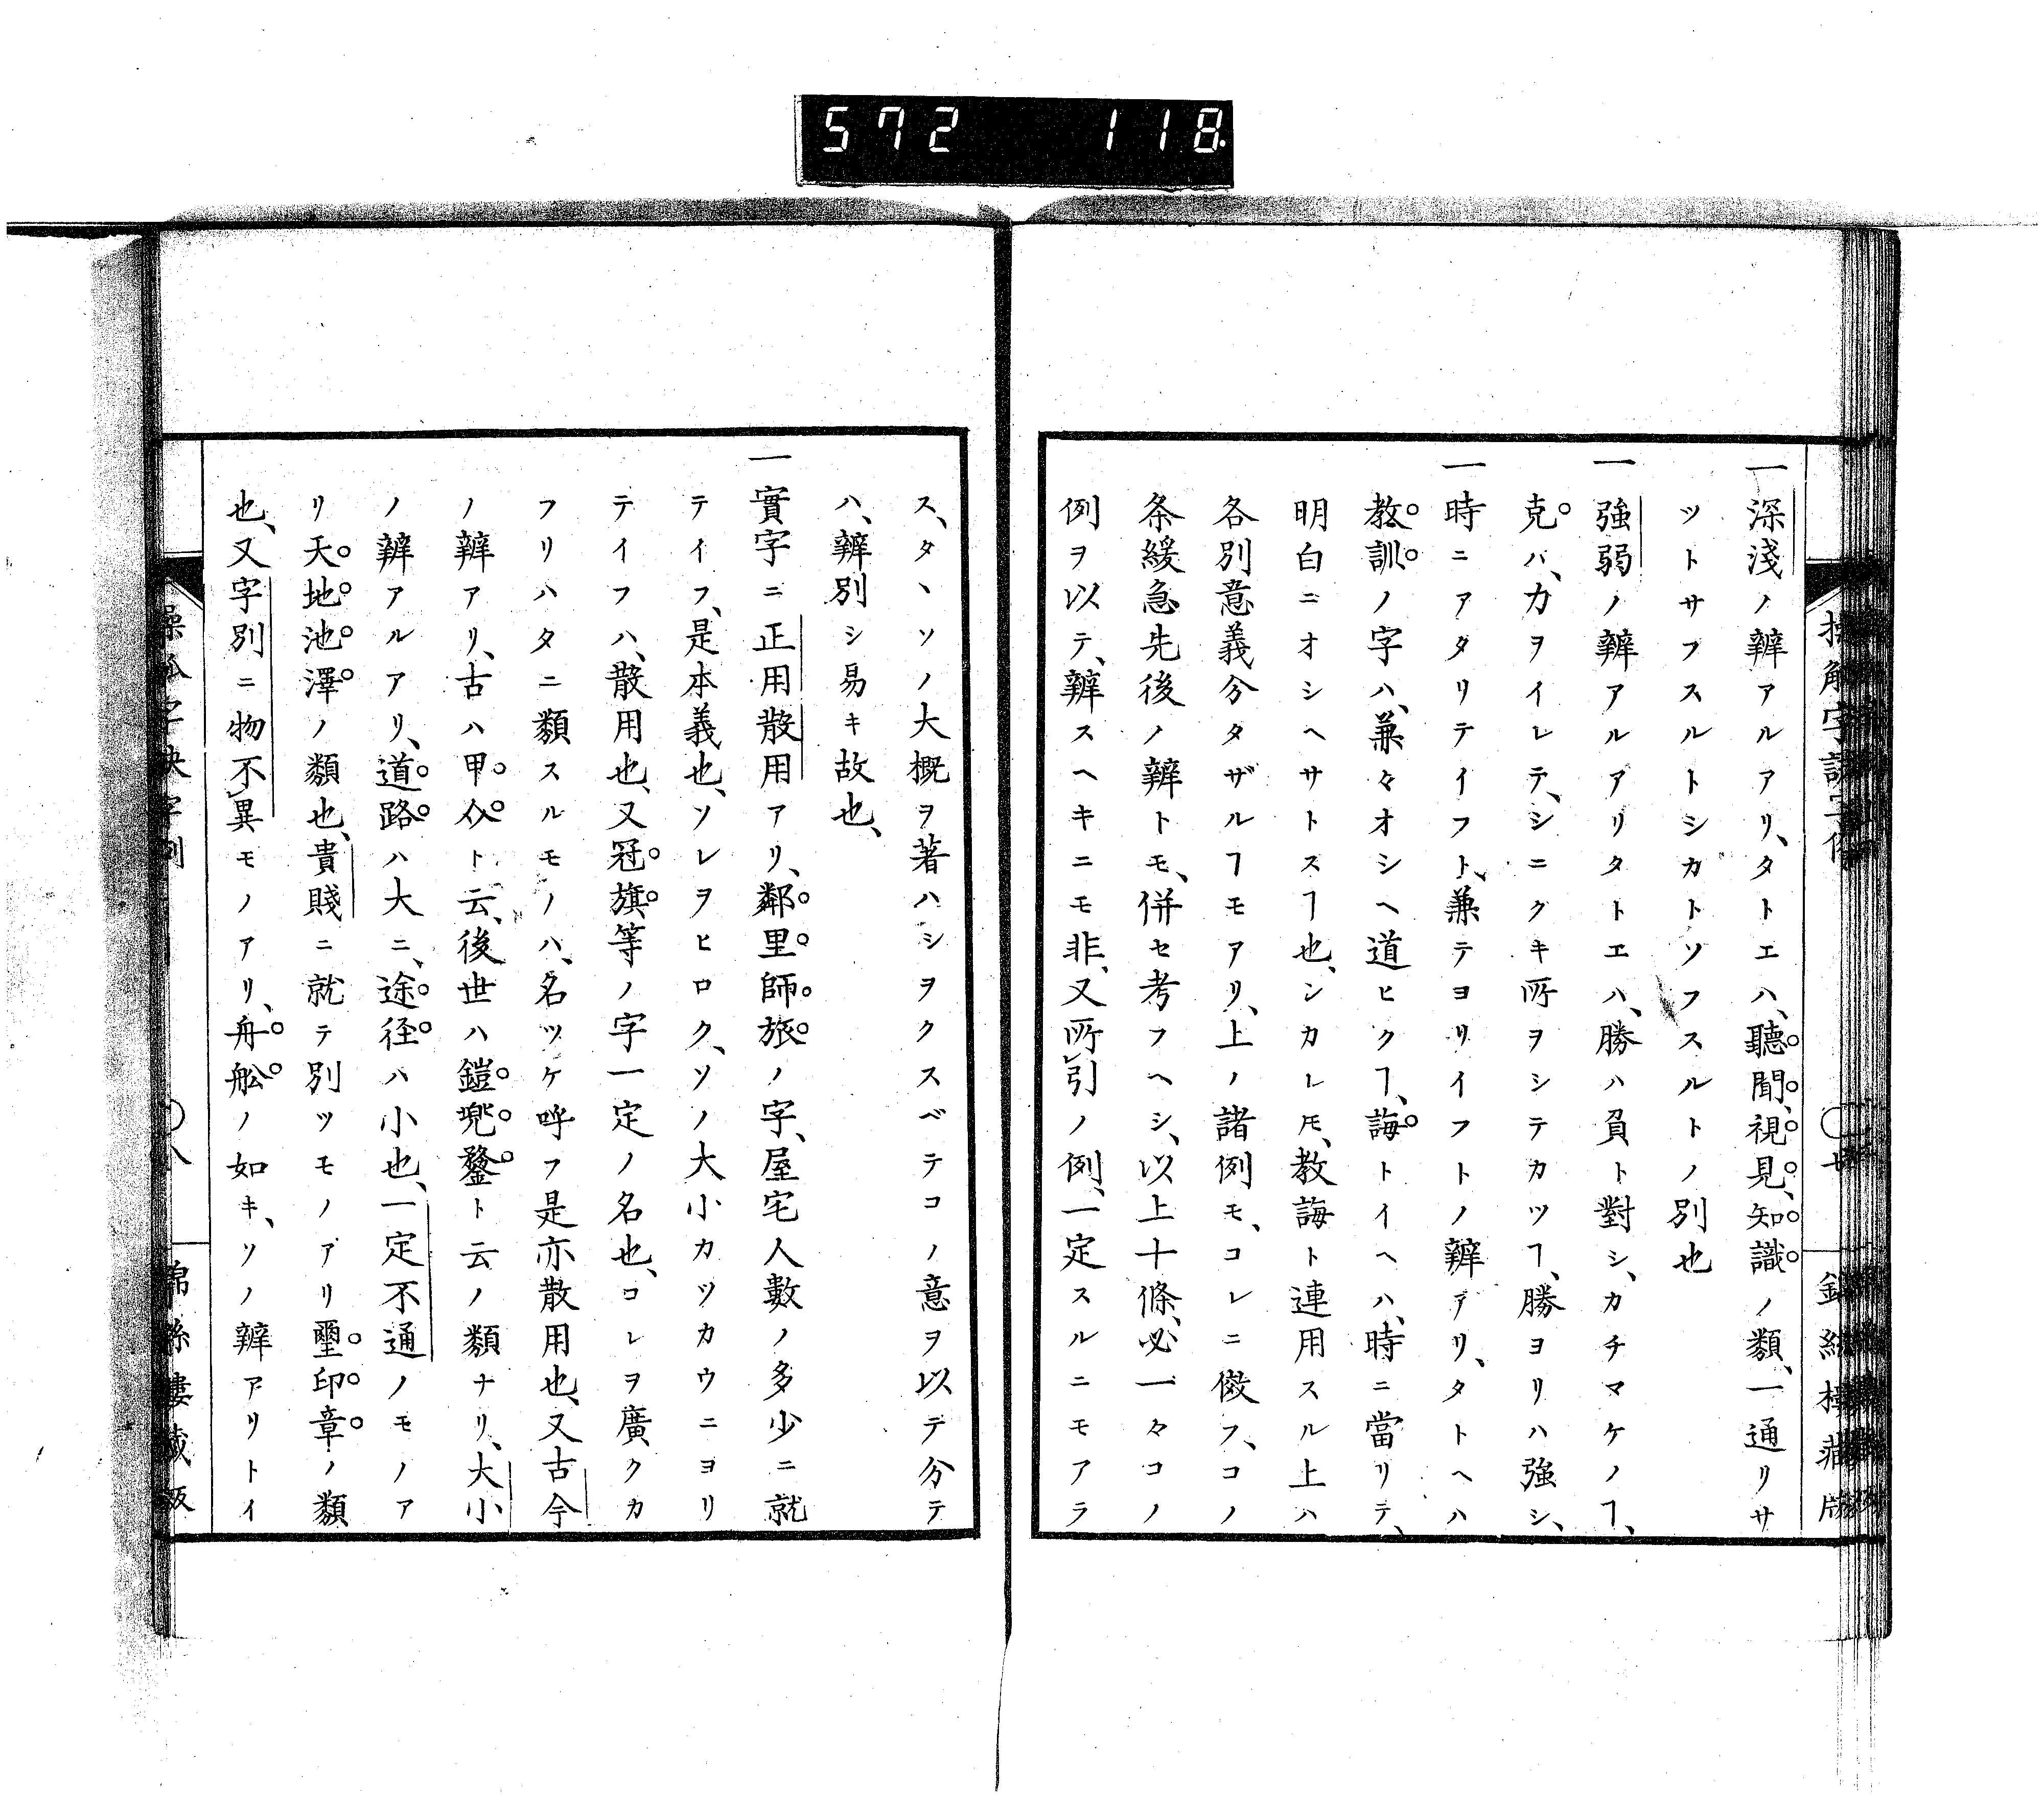 572 118
一深淺ノ辨アルアリ、タトエハ、聽聞、視見、知識ノ類、一通リサ
ツトサフスルトシカトソフスルトノ別也
一強弱ノ辨アルアリタトエハ、勝ハ負ト對シ、カチマケノヿ、
克バ、力ヲイレテ、シニクキ所ヲシテカツヿ、勝ヨリハ強シ、
一時ニアタリテイフト、兼テヨリイフトノ辨アリ、タトヘハ
教訓ノ字ハ、兼々オシヘ道ヒクヿ、誨トイヘハ、時ニ當リテ、
明白ニオシヘサトスヿ也、シカレ𪜈、教誨ト連用スル上ハ
各別意義分タザルヿモアリ、上ノ諸例モ、コレニ倣フ、コノ
条緩急先後ノ辨トモ、併セ考フヘシ、以上十條、必一々コノ
例ヲ以テ、辨スヘキニモ非、又所引ノ例、一定スルニモアラ
ス、タヽソノ大概ヲ著ハシヲクスベテコノ意ヲ以テ分テ
ハ、辨別シ易キ故也、
一實字ニ正用散用アリ、鄰里師旅ノ字、屋宅人數ノ多少ニ就
テイフ、是本義也、ソレヲヒロク、ソノ大小カツカウニヨリ
テイフハ、散用也、又冠旗等ノ字一定ノ名也、コレヲ廣クカ
フリハタニ類スルモノハ、名ツケ呼フ是亦散用也、又古今
ノ辨アリ、古ハ甲㕘ト云、後世ハ鎧兜鍪ト云ノ類ナリ、大小
ノ辨アルアリ、道路ハ大ニ、途径ハ小也、一定不通ノモノア
リ天地池澤ノ類也、貴賤ニ就テ別ツモノアリ璽印章ノ類
也、又字別ニ物不異モノアリ、舟舩ノ如キ、ソノ辨アリトイ